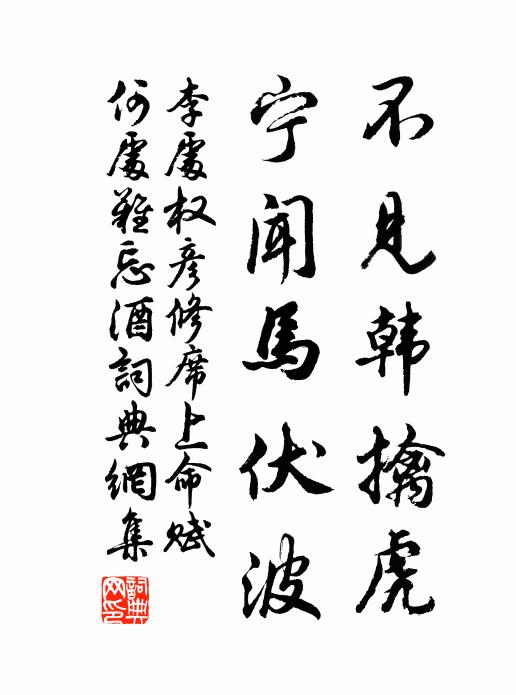 不见韩擒虎
宁闻马伏波
李處权彦修席上命赋
何處難忘酒詞典網集
詞典网印